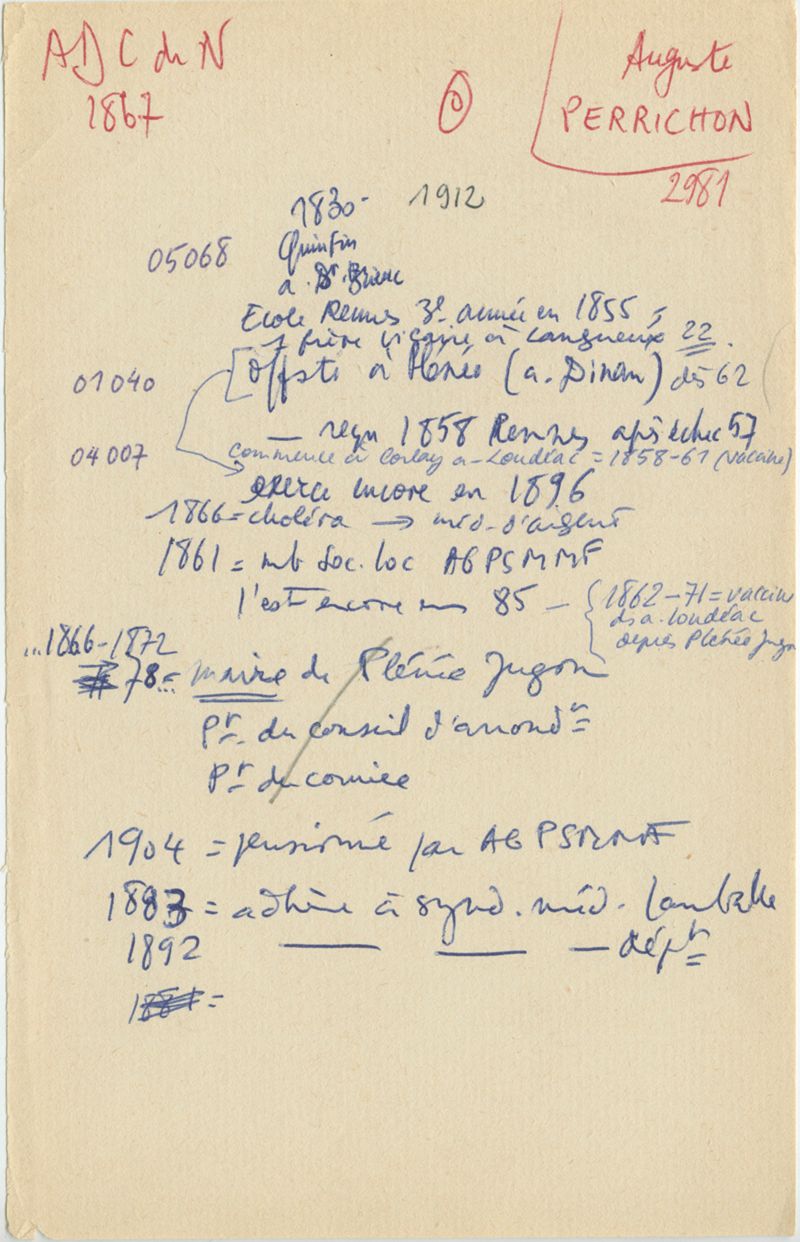 AD C du N
1867
Auguste
PERRICHON
2981
1830-
1912
05068
Quintin
a. St. Brieuc
Ecole Rennes 3e année en 1855
1 frère vicaire à Langueux 22.
01040
Offste à Plénée (a. Dinan) dès 62
— reçu 1858 Rennes après échec 57
04007
commence à Corlay a. Loudéac = 1858-61 (vaccine)
exerce encore en 1896
1866 = choléra → méd. d'argent
1861 = mb Soc. loc AGPSMMF
l'est encore en 85 —
1862-71 = vaccine
ds a. Loudéac
depuis Plénée Jugon
...1866-1872
78 = ... maire de Plénée Jugon
Pt du conseil d'arrondt
Pt du comice
1904 = pensionné par AGPSMMF
1883 = adhère à synd. méd. Lamballe
1892 — — — dépt